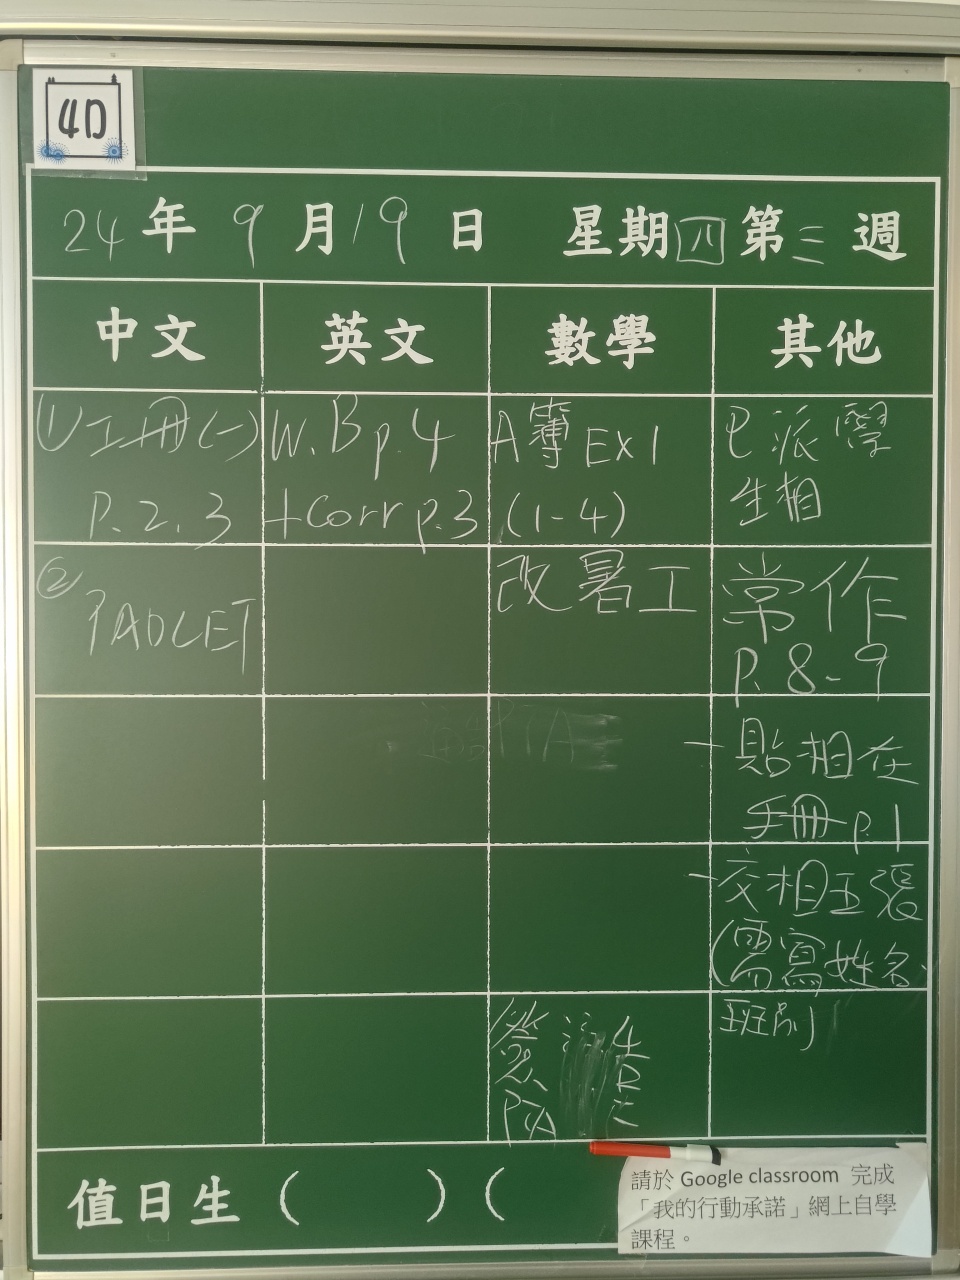 4D
24年9月19日 星期四第三週
中文 英文 數學 其他
①工冊(一)
P.2,3
W.B p.4
+Corr p.3
A簿 EX1
(1-4)
已派學
生相
②
PADLET
改暑工
常作
P.8-9
-貼相在
手冊p.1
-交相五張
(需寫姓名、
班別)
簽
值日生( )(
請於 Google classroom 完成
「我的行動承諾」網上自學
課程。